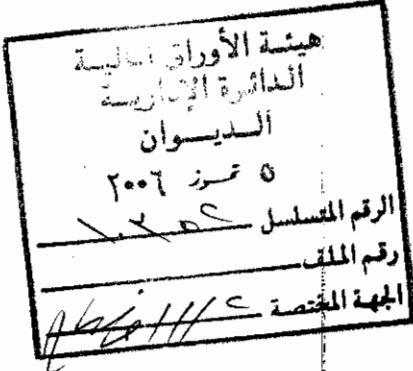 هيئة الأوراق المالية
الدائرة الإدارية
الديوان
٥ تموز ٢٠٠٦
الرقم المتسلسل
رقم الملف
الجهة المختصة